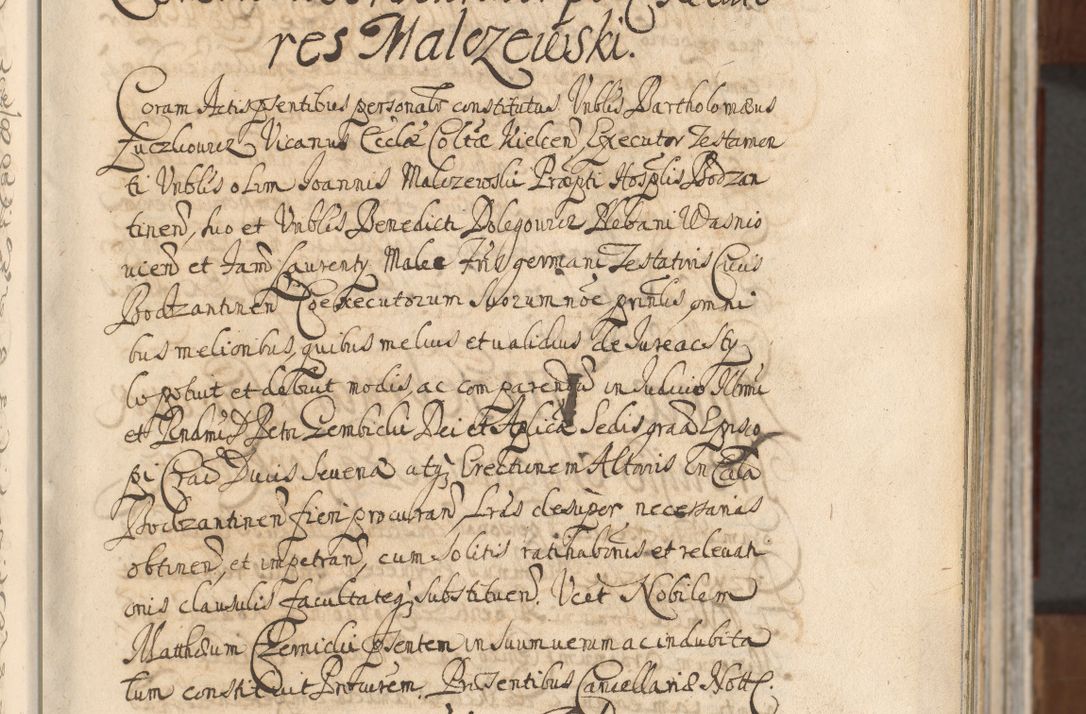 res Malczewski.
Coram Actis pntibus personalr constitutus Vnblis Bartholomæus
Łuczkowicz Vicarius Ecclæ Coltæ Kielcen Executor Testamen
ti Vnblis olim Joannis Malczewski Præpti Hosplis Bodzan
tinen, suo et Vnblis Benedicti Dolegowicz Plebani Wasnio
vien et Fam Laurenty Malec Fris germani Testatoris Civis
Bodzantinen Coexecutorum suorum noe prntis, omni
bus melioribus, quibus melius et validius de Jure ac sty
lo potuit et debuit modis, ac comparendu in Judicio Illrmi
et Rendmi D Petri Gembicki Dei et Aplicæ Sedis graa Episco
pi Crac Ducis Severiæ atq Erectionem Altaris in Ecclã
Bodzantinen fieri procuran, Lras desuper necessarias
obtinen, et impetran, cum solitis ratihabinis et relevati
onis clausulis facultateq substituen. Vcet Nobilem
Matthæum Czernicki psentem in suum verum ac indubita
tum constituit Procurem. Præsentibus Cancellariæ Nott.